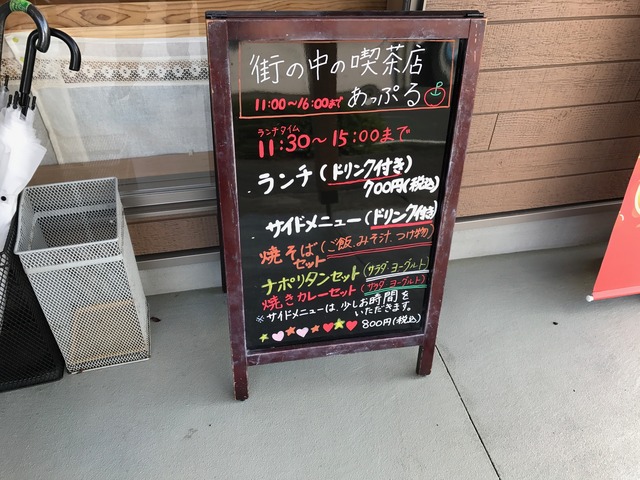 街の中の喫茶店
11:00～16:00まで あっぷる
ランチタイム
11:30～15:00まで
ランチ(ドリンク付き)
700円(税込)
サイドメニュー(ドリンク付き)
焼そば(ご飯、みそ汁、つけ物)
セット
ナポリタンセット(サラダ・ヨーグルト)
焼きカレーセット(サラダ・ヨーグルト)
※サイドメニューは、少しお時間を
いただきます。
800円(税込)